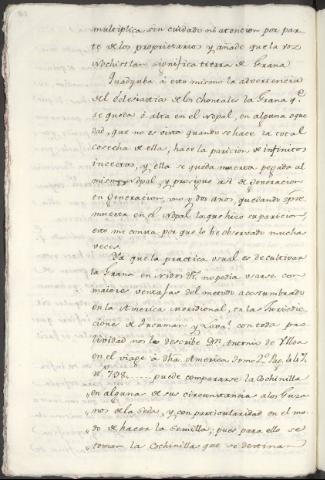 multiplica sin cuidado ni atencion por par
te de los proprietarios y añade que la voz
Nochistlan significa tierra de Grana.
Quadyuba á esto mismo la advertencia
del Eclesiastico de los chontales la Grana q.e
se queda ó alta en el nopal, en alguna oque
dad, que no es vista quando se hace la total
cosecha de ella, hace la paricion de infinitos
insectos, y ella se queda muerta pegada al
mismo nopal, y prosigue asi de generacion
en generacion, uno y dos años, quedando spre.
muerta en el nopal la que hizo su paricion,
esto me consta por que lo he observado muchas
veces.
Ya que la practica usual es de cultivar
la Grana en nidos no podia usarse con
maiores ventajas del metodo acostumbrado
en la America meridional, en las Jurisdic
ciones de con toda pro
lividad nos las describe D.n Antonio de Ulloa
en el viage á dha. America tomo 2.o Pag.
n.o 798. puede compararse la Cochinilla
en alguna de sus circunstancias a los Guza
nos de la seda, y con particularidad en el mo
do de hacer la semilla; pues para ello se
toman la Cochinillas que se destinan